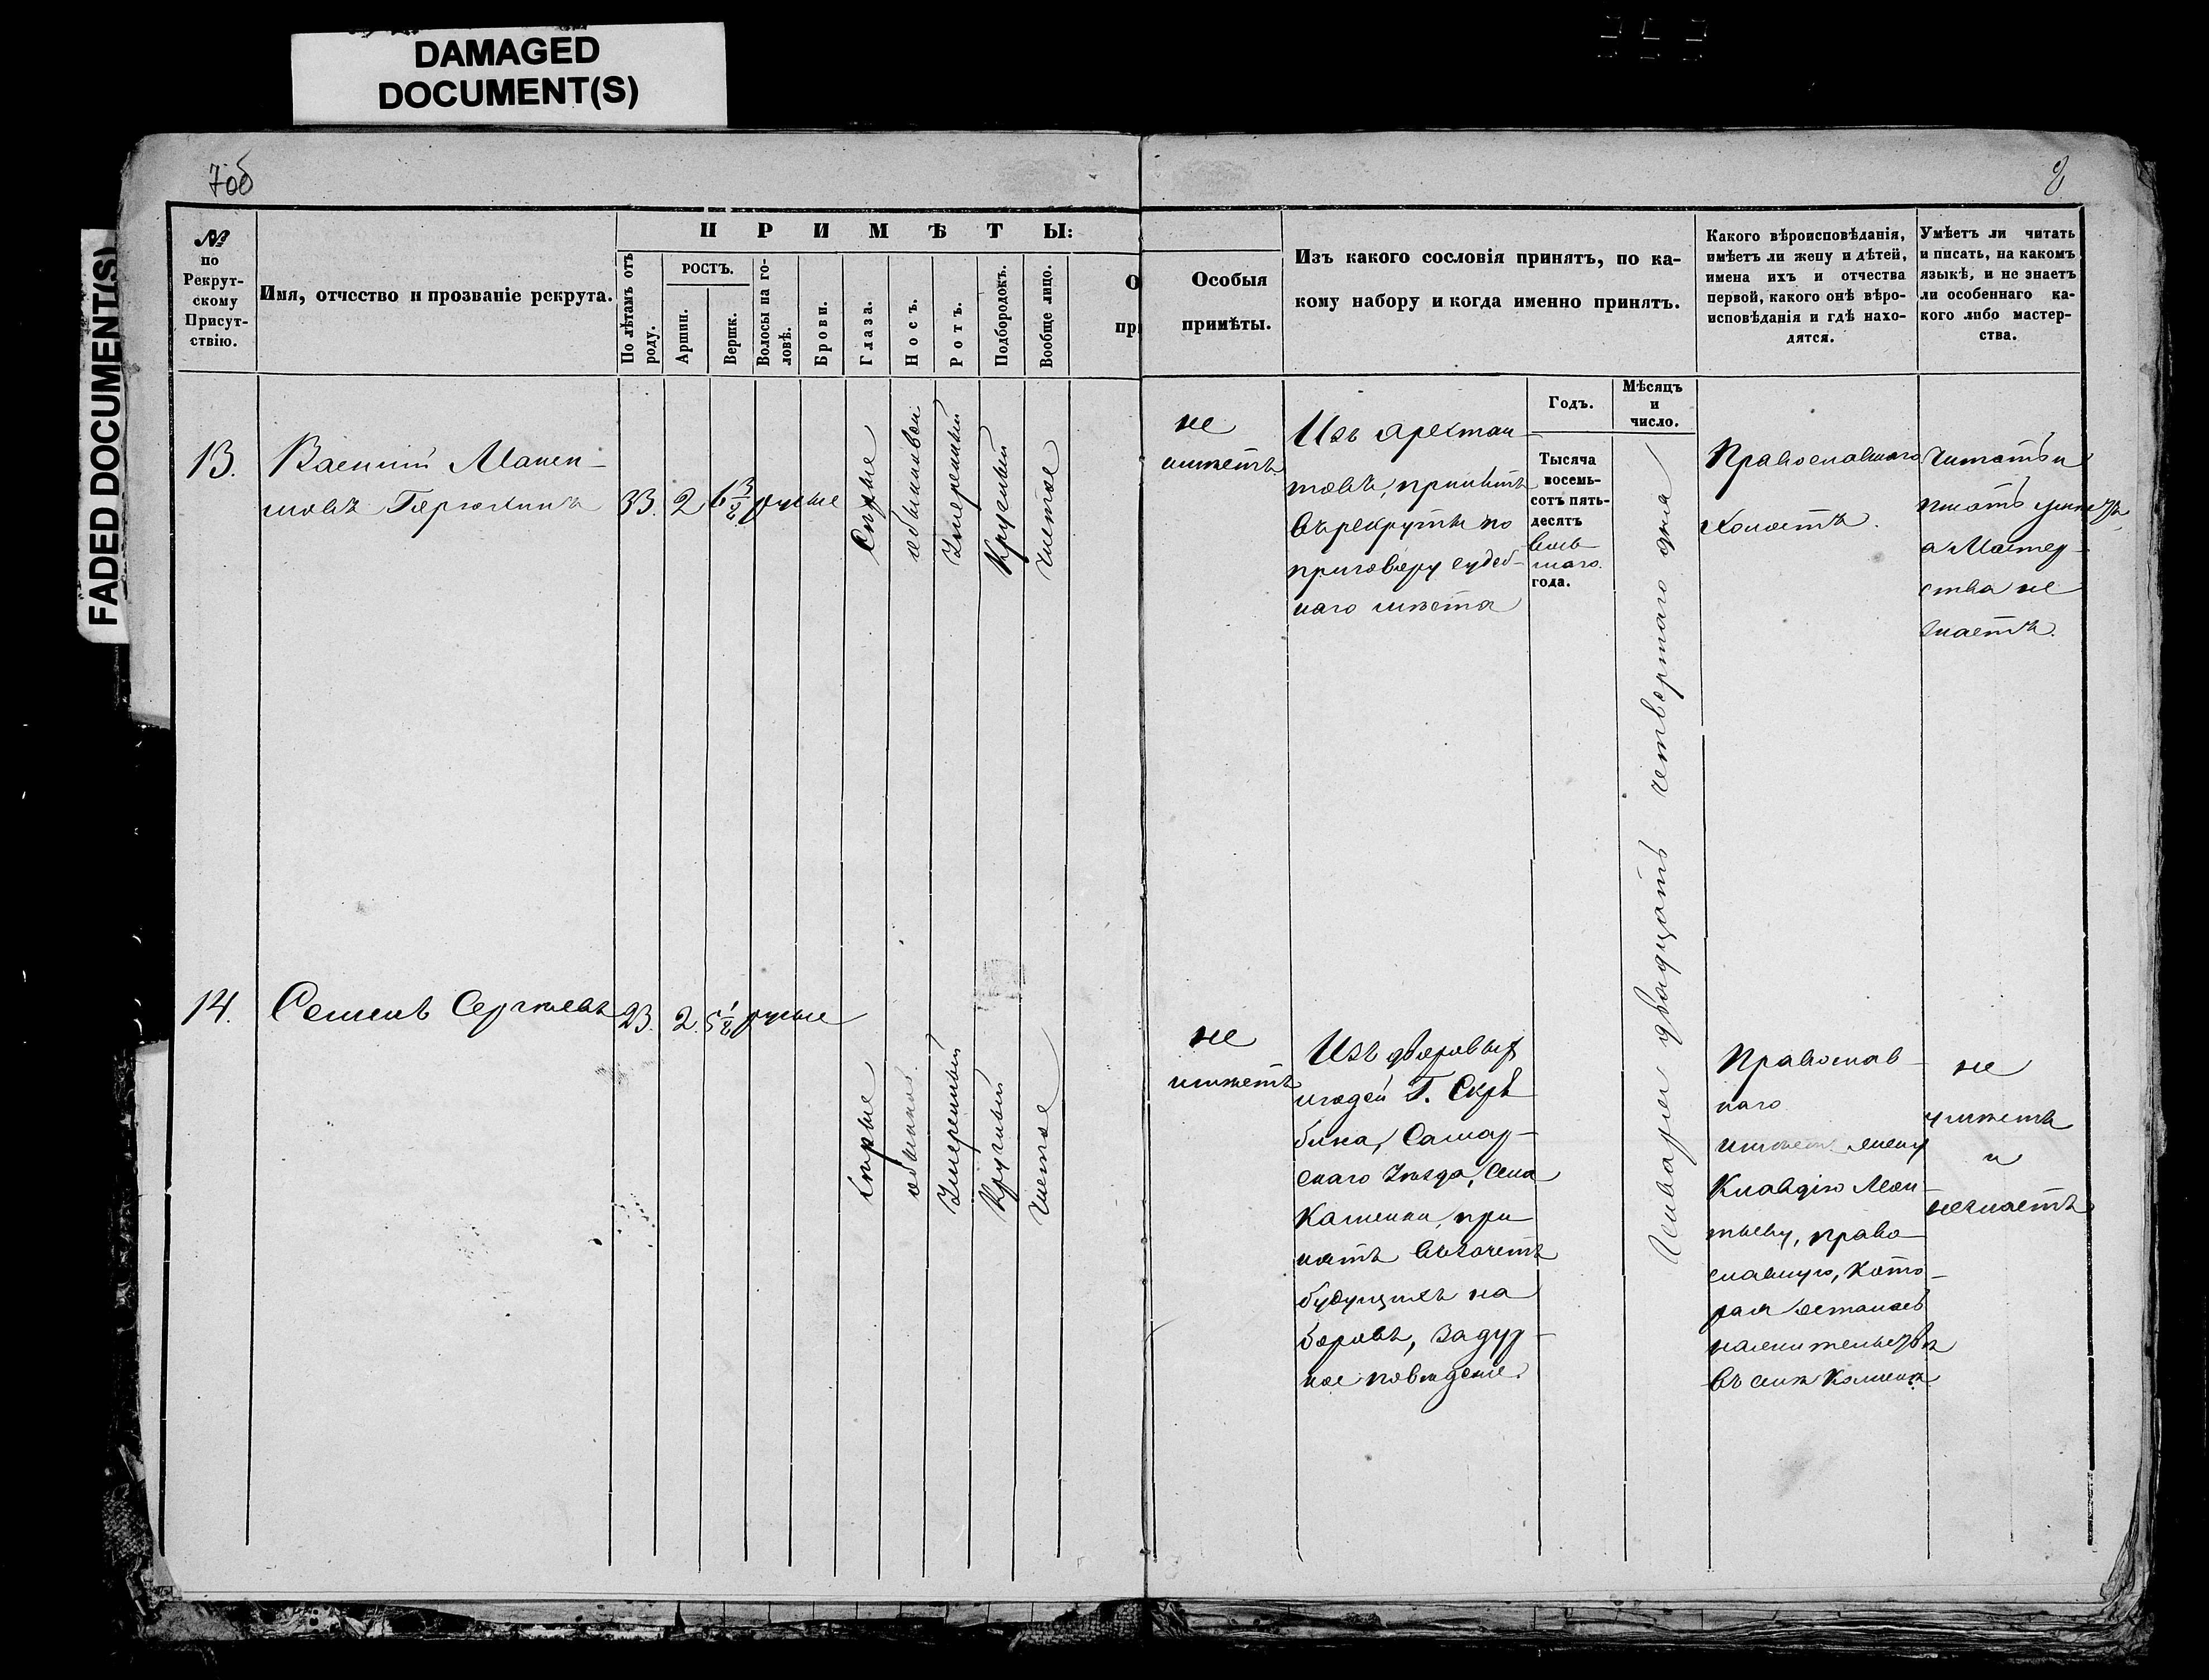 DAMAGED
DOCUMENT(S)
FADED DOCUMENT(S)
7об
8
№
по
Рекрут-
скому
Присут-
ствію.
Имя, отчество и прозваніе рекрута.
ПРИМѢТЫ:
По лѣтамъ отъ
роду.
РОСТЪ.
Аршин.
Вершк.
Волосы на го-
ловѣ.
Брови.
Глаза.
Носъ.
Ротъ.
Подбородокъ.
Вообще лицо.
О
пр
Особыя
примѣты.
Изъ какого сословія принятъ, по ка-
кому набору и когда именно принятъ.
Какого вѣроисповѣданія,
имѣетъ ли жену и дѣтей,
имена ихъ и отчества
первой, какого онѣ вѣро-
исповѣданія и гдѣ нахо-
дятся.
Умѣетъ ли читать
и писать, на какомъ
языкѣ, и не знаетъ
ли особеннаго ка-
кого либо мастер-
ства.
Годъ.
Мѣсяцъ
и
число.
Тысяча
восемь-
сотъ пять-
десятъ
года.
13.
Василій
33.
2
6 3/8
русые
Сѣрые
обыкновен
Умеренный
Круглый
Чистое
не
имѣетъ
Изъ арестан-
товъ, принятъ
въ рекруты по
приговору судеб-
наго мѣста
Января двадцать четвертаго дня
Православнаго
Холостъ.
Читать и
писать умѣетъ
а Мастер-
ства не
знаетъ.
14.
Семенъ Сергѣевъ
23.
2.
5 1/8
русые
Сѣрые
обыкнов.
Умеренный
Круглый
Чистое
не
имѣетъ
Изъ дворовыхъ
людей Г. Скря
бина, Самар-
скаго Уѣзда, села
Каменки, при
нятъ въ зачетъ
будущихъ на
боровъ, за дур-
ное поведеніе.
Православ-
наго
имѣетъ жену
Клавдію Леон-
тьеву, право-
славную, кото-
рая осталась
на жительствѣ
въ селѣ Каменкѣ
не
умѣетъ
и
незнаетъ